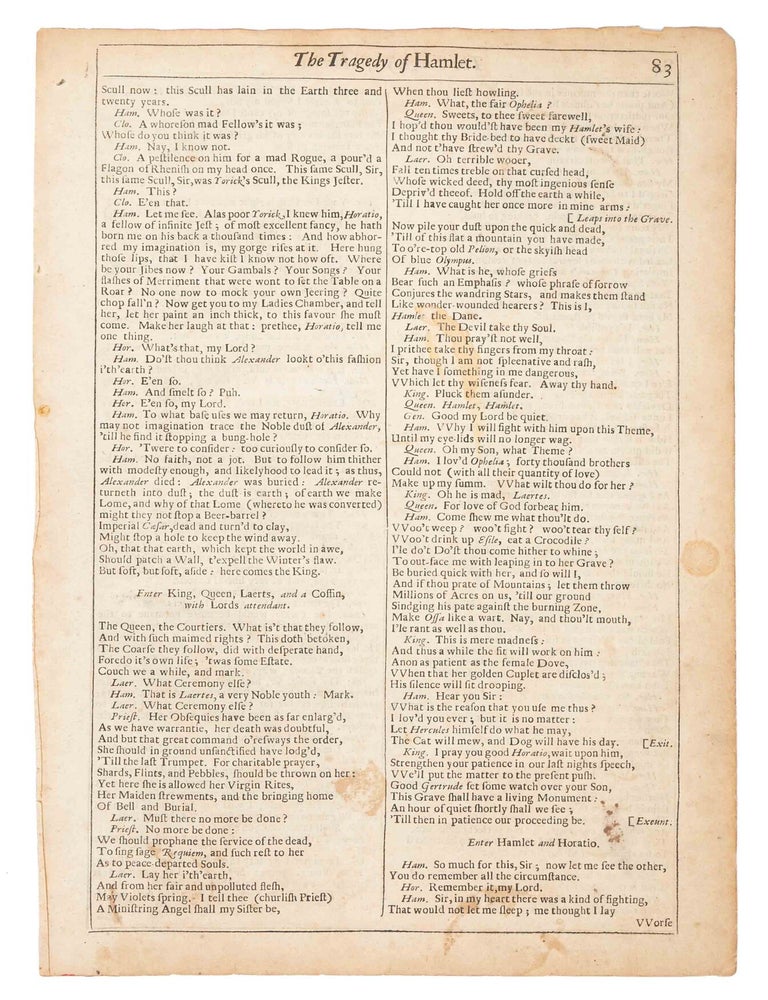 The Tragedy of Hamlet.
83
Scull now: this Scull has lain in the Earth three and
twenty years.
Ham. Whoſe was it?
Clo. A whoreſon mad Fellow's it was;
Whoſe do you think it was?
Ham. Nay, I know not.
Clo. A peſtilence on him for a mad Rogue, a pour'd a
Flagon of Rheniſh on my head once. This ſame Scull, Sir,
this ſame Scull, Sir, was Yorick's Scull, the Kings Jeſter.
Ham. This?
Clo. E'en that.
Ham. Let me ſee. Alas poor Yorick, I knew him, Horatio,
a fellow of infinite Jeſt; of moſt excellent fancy, he hath
born me on his back a thouſand times: And how abhor-
red my imagination is, my gorge riſes at it. Here hung
thoſe lips, that I have kiſt I know not how oft. Where
be your Jibes now? Your Gambals? Your Songs? Your
flaſhes of Merriment that were wont to ſet the Table on a
Roar? No one now to mock your own Jeering? Quite
chop fall'n? Now get you to my Ladies Chamber, and tell
her, let her paint an inch thick, to this favour ſhe muſt
come. Make her laugh at that: prethee, Horatio, tell me
one thing.
Hor. What's that, my Lord?
Ham. Do'ſt thou think Alexander lookt o'this faſhion
i'th'earth?
Hor. E'en ſo.
Ham. And ſmelt ſo? Puh.
Hor. E'en ſo, my Lord.
Ham. To what baſe uſes we may return, Horatio. Why
may not imagination trace the Noble duſt of Alexander,
'till he find it ſtopping a bung-hole?
Hor. 'Twere to conſider: too curiouſly to conſider ſo.
Ham. No faith, not a jot. But to follow him thither
with modeſty enough, and likelyhood to lead it; as thus,
Alexander died: Alexander was buried: Alexander re-
turneth into duſt; the duſt is earth; of earth we make
Lome, and why of that Lome (whereto he was converted)
might they not ſtop a Beer-barrel?
Imperial Cæſar, dead and turn'd to clay,
Might ſtop a hole to keep the wind away.
Oh, that that earth, which kept the world in awe,
Should patch a Wall, t'expell the Winter's flaw.
But ſoft, but ſoft, aſide: here comes the King.
Enter King, Queen, Laerts, and a Coffin,
with Lords attendant.
The Queen, the Courtiers. What is't that they follow,
And with ſuch maimed rights? This doth betoken,
The Coarſe they follow, did with deſperate hand,
Foredo it's own life; 'twas ſome Eſtate.
Couch we a while, and mark.
Laer. What Ceremony elſe?
Ham. That is Laertes, a very Noble youth: Mark.
Laer. What Ceremony elſe?
Prieſt. Her Obſequies have been as far enlarg'd,
As we have warrantie, her death was doubtful,
And but that great command o'reſways the order,
She ſhould in ground unſanctified have lodg'd,
'Till the laſt Trumpet. For charitable prayer,
Shards, Flints, and Pebbles, ſhould be thrown on her:
Yet here ſhe is allowed her Virgin Rites,
Her Maiden ſtrewments, and the bringing home
Of Bell and Burial.
Laer. Muſt there no more be done?
Prieſt. No more be done:
We ſhould prophane the ſervice of the dead,
To ſing ſage Requiem, and ſuch reſt to her
As to peace-departed Souls.
Laer. Lay her i'th'earth,
And from her fair and unpolluted fleſh,
May Violets ſpring. I tell thee (churliſh Prieſt)
A Miniſtring Angel ſhall my Siſter be,
When thou lieſt howling.
Ham. What, the fair Ophelia?
Queen. Sweets, to thee ſweet farewell,
I hop'd thou would'ſt have been my Hamlet's wife:
I thought thy Bride-bed to have deckt (ſweet Maid)
And not t'have ſtrew'd thy Grave.
Laer. Oh terrible wooer,
Fall ten times treble on that curſed head,
Whoſe wicked deed, thy moſt ingenious ſenſe
Depriv'd theeof. Hold off the earth a while,
'Till I have caught her once more in mine arms:
[Leaps into the Grave.
Now pile your duſt upon the quick and dead,
'Till of this flat a mountain you have made,
To o're-top old Pelion, or the skyiſh head
Of blue Olympus.
Ham. What is he, whoſe griefs
Bear ſuch an Emphaſis? whoſe phraſe of ſorrow
Conjures the wandring Stars, and makes them ſtand
Like wonder-wounded hearers? This is I,
Hamlet the Dane.
Laer. The Devil take thy Soul.
Ham. Thou pray'ſt not well,
I prithee take thy fingers from my throat:
Sir, though I am not ſpleenative and raſh,
Yet have I ſomething in me dangerous,
VVhich let thy wiſeneſs fear. Away thy hand.
King. Pluck them aſunder.
Queen. Hamlet, Hamlet.
Gen. Good my Lord be quiet.
Ham. VVhy I will fight with him upon this Theme,
Until my eye-lids will no longer wag.
Queen. Oh my Son, what Theme?
Ham. I lov'd Ophelia; forty thouſand brothers
Could not (with all their quantity of love)
Make up my ſumm. VVhat wilt thou do for her?
King. Oh he is mad, Laertes.
Queen. For love of God forbear him.
Ham. Come ſhew me what thou'lt do.
VVoo't weep? woo't fight? woo't tear thy ſelf?
VVoo't drink up Eſile, eat a Crocodile?
I'le do't Do'ſt thou come hither to whine;
To out-face me with leaping in to her Grave?
Be buried quick with her, and ſo will I,
And if thou prate of Mountains; let them throw
Millions of Acres on us, 'till our ground
Sindging his pate againſt the burning Zone,
Make Oſſa like a wart. Nay, and thou'lt mouth,
I'le rant as well as thou.
King. This is mere madneſs:
And thus a while the fit will work on him:
Anon as patient as the female Dove,
VVhen that her golden Cuplet are diſclos'd;
His ſilence will ſit drooping.
Ham. Hear you Sir:
VVhat is the reaſon that you uſe me thus?
I lov'd you ever; but it is no matter:
Let Hercules himſelf do what he may,
The Cat will mew, and Dog will have his day. [Exit.
King. I pray you good Horatio, wait upon him,
Strengthen your patience in our laſt nights ſpeech,
VVe'll put the matter to the preſent puſh.
Good Gertrude ſet ſome watch over your Son,
This Grave ſhall have a living Monument:
An hour of quiet ſhortly ſhall we ſee;
'Till then in patience our proceeding be. [Exeunt.
Enter Hamlet and Horatio.
Ham. So much for this, Sir; now let me ſee the other,
You do remember all the circumſtance.
Hor. Remember it, my Lord.
Ham. Sir, in my heart there was a kind of fighting,
That would not let me ſleep; me thought I lay
VVorſe